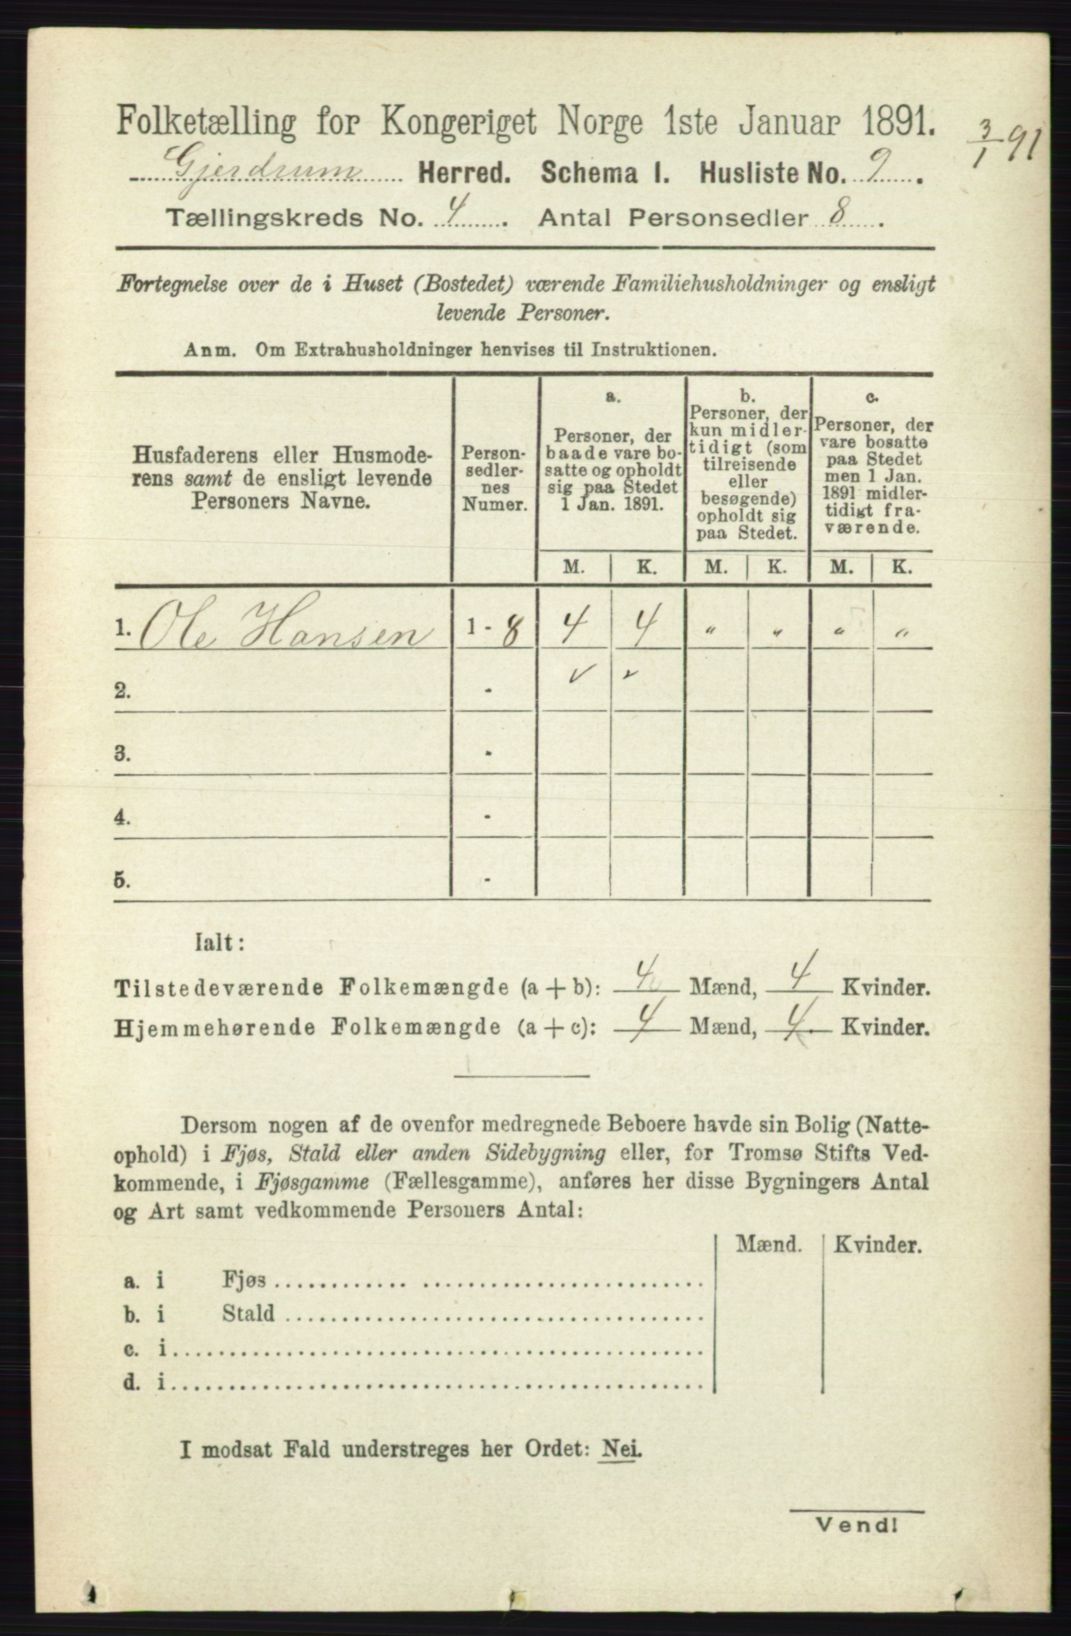 Folketælling for Kongeriget Norge 1ste Januar 1891.
3/1 91
Gjerdrum Herred. Schema I. Husliste No. 9.
Tællingskreds No. 4. Antal Personsedler 8.
Fortegnelse over de i Huset (Bostedet) værende Familiehusholdninger og ensligt
levende Personer.
Anm. Om Extrahusholdninger henvises til Instruktionen.
Husfaderens eller Husmode-
rens samt de ensligt levende
Personers Navne.
Person-
sedler-
nes
Numer.
a.
Personer, der
baade vare bo-
satte og opholdt
sig paa Stedet
1 Jan. 1891.
b.
Personer, der
kun midler-
tidigt (som
tilreisende
eller
besøgende)
opholdt sig
paa Stedet.
c.
Personer, der
vare bosatte
paa Stedet
men 1 Jan.
1891 midler-
tidigt fra-
værende.
M. K. M. K. M. K.
1. Ole Hansen 1 - 8 4 4 " " " "
2. -
3. -
4. -
5. -
Ialt:
Tilstedeværende Folkemængde (a + b): 4 Mænd, 4 Kvinder.
Hjemmehørende Folkemængde (a + c): 4 Mænd, 4 Kvinder.
Dersom nogen af de ovenfor medregnede Beboere havde sin Bolig (Natte-
ophold) i Fjøs, Stald eller anden Sidebygning eller, for Tromsø Stifts Ved-
kommende, i Fjøsgamme (Fællesgamme), anføres her disse Bygningers Antal
og Art samt vedkommende Personers Antal:
Mænd. Kvinder.
a. i Fjøs
b. i Stald
c. i
d. i
I modsat Fald understreges her Ordet: Nei.
Vend!